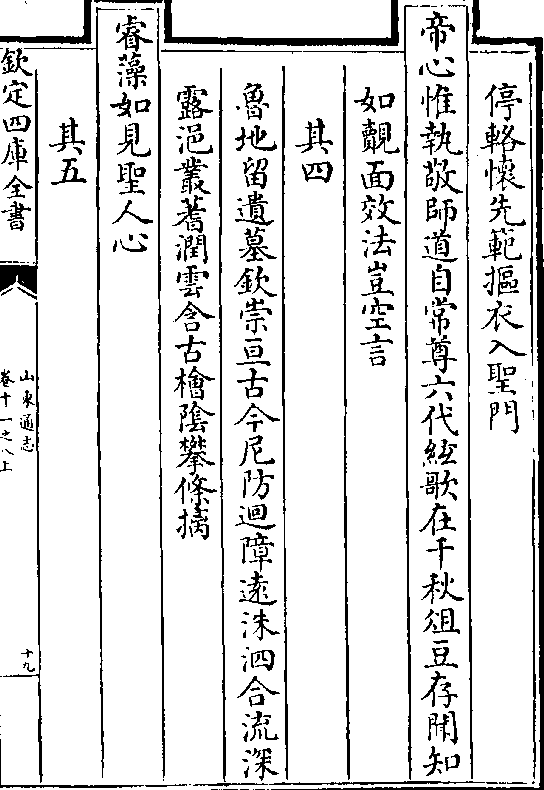 停輅懷先範摳衣入聖門
帝心惟執敬師道自常尊六代絃歌在千秋俎豆存開知
如覿面效法豈空言
其四
魯地留遺墓欽崇亘古今尼防迴障遠洙泗合流深
露浥叢蓍潤雲含古檜陰攀條摛
睿藻如見聖人心
其五
欽定四庫全書
山東通志
卷十一之八上
十九